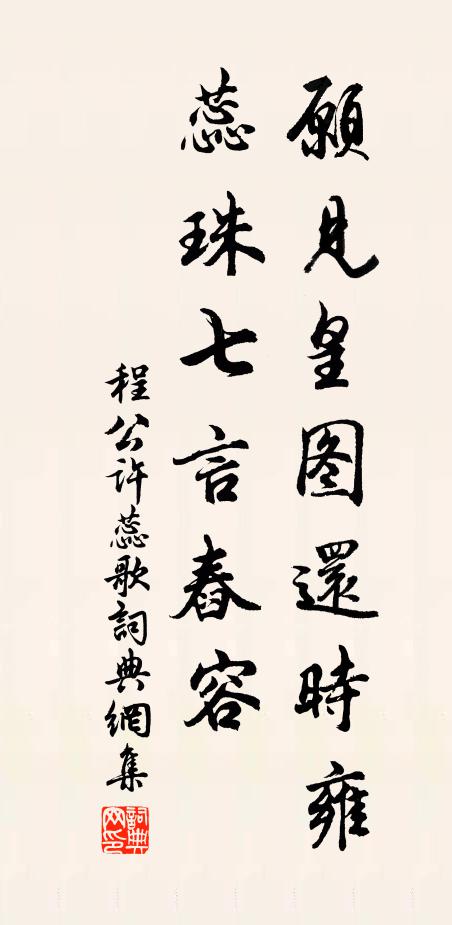 願見皇图還時雍
蕊珠七言舂容
程公許蕊歌詞典網集
詞典网印